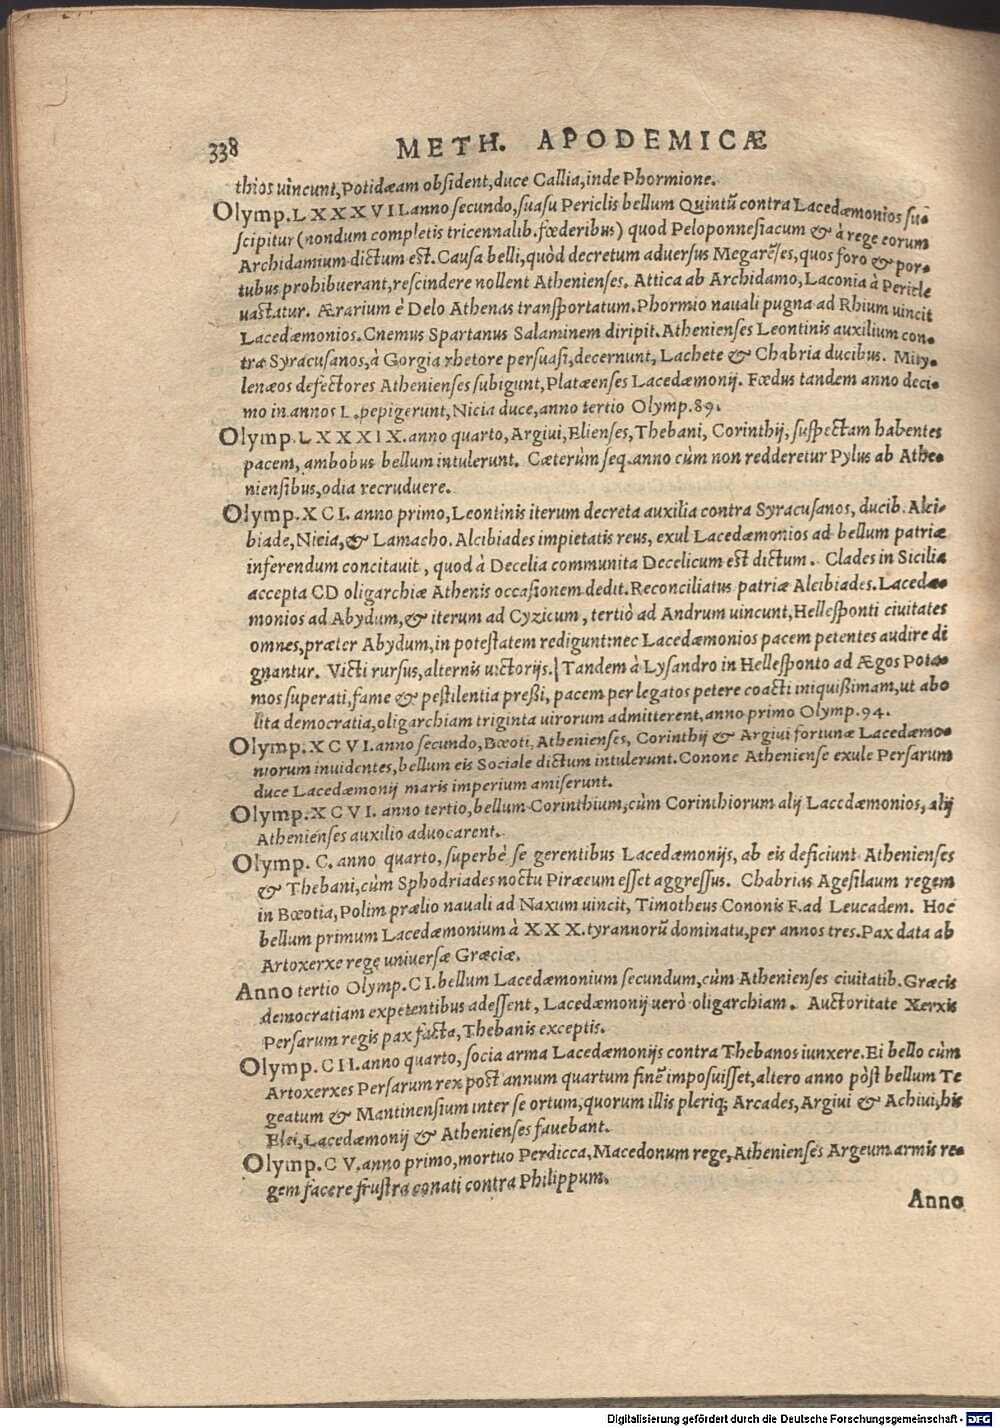 338 METH. APODEMICÆ
thios uincunt, Potidæam obsident, duce Callia, inde Phormione.
Olymp. LXXXVII. anno secundo, suasu Periclis bellum Quintũ contra Lacedæmonios su-
scipitur (nondum completis tricennalib. fœderibus) quod Peloponnesiacum & à rege eorum
Archidamium dictum est. Causa belli, quòd decretum aduersus Megarẽses, quos foro & por-
tubus prohibuerant, rescindere nollent Athenienses. Attica ab Archidamo, Laconia à Pericle
uastatur. Ærarium è Delo Athenas transportatum. Phormio nauali pugna ad Rhium uincit
Lacedæmonios. Cnemus Spartanus Salaminem diripit. Athenienses Leontinis auxilium con-
tra Syracusanos, à Gorgia rhetore persuasi, decernunt, Lachete & Chabria ducibus. Mity-
lenæos defectores Athenienses subigunt, Platæenses Lacedæmonij. Fœdus tandem anno deci-
mo in annos L. pepigerunt, Nicia duce, anno tertio Olymp. 89.
Olymp. LXXXIX. anno quarto, Argiui, Elienses, Thebani, Corinthij, suspectam habentes
pacem, ambobus bellum intulerunt. Cæterùm seq. anno cùm non redderetur Pylus ab Athe-
niensibus, odia recruduere.
Olymp. XCI. anno primo, Leontinis iterum decreta auxilia contra Syracusanos, ducib. Alci-
biade, Nicia, & Lamacho. Alcibiades impietatis reus, exul Lacedæmonios ad bellum patriæ
inferendum concitauit, quod à Decelia communita Decelicum est dictum. Clades in Sicilia
accepta CD oligarchiæ Athenis occasionem dedit. Reconciliatus patriæ Alcibiades. Lacedæ-
monios ad Abydum, & iterum ad Cyzicum, tertiò ad Andrum uincunt, Hellesponti ciuitates
omnes, præter Abydum, in potestatem redigunt: nec Lacedæmonios pacem petentes audire di
gnantur. Victi rursus, alternis uictorijs. | Tandem à Lysandro in Hellesponto ad Ægos Pota-
mos superati, fame & pestilentia preßi, pacem per legatos petere coacti iniquißimam, ut abo
lita democratia, oligarchiam triginta uirorum admitterent, anno primo Olymp. 94.
Olymp. XCVI. anno secundo, Bœoti, Athenienses, Corinthij & Argiui fortunæ Lacedæmo-
niorum inuidentes, bellum eis Sociale dictum intulerunt. Conone Atheniense exule Persarum
duce Lacedæmonij maris imperium amiserunt.
Olymp. XCVI. anno tertio, bellum Corinthium, cùm Corinthiorum alij Lacedæmonios, alij
Athenienses auxilio aduocarent.
Olymp. C. anno quarto, superbè se gerentibus Lacedæmonijs, ab eis deficiunt Athenienses
& Thebani, cùm Sphodriades noctu Piræeum esset aggressus. Chabrias Agesilaum regem
in Bœotia, Polim prælio nauali ad Naxum uincit, Timotheus Cononis F. ad Leucadem. Hoc
bellum primum Lacedæmonium à XXX. tyrannorũ dominatu, per annos tres. Pax data ab
Artoxerxe rege uniuersæ Græciæ.
Anno tertio Olymp. CI. bellum Lacedæmonium secundum, cùm Athenienses ciuitatib. Græcis
democratiam expetentibus adessent, Lacedæmonij uerò oligarchiam. Auctoritate Xerxis
Persarum regis pax facta, Thebanis exceptis.
Olymp. CII. anno quarto, socia arma Lacedæmonijs contra Thebanos iunxere. Ei bello cùm
Artoxerxes Persarum rex post annum quartum finẽ imposuisset, altero anno pòst bellum Te
geatum & Mantinensium inter se ortum, quorum illis pleriq; Arcades, Argiui & Achiui, his
Elei, Lacedæmonij & Athenienses fauebant.
Olymp. CV. anno primo, mortuo Perdicca, Macedonum rege, Athenienses Argeum armis re-
gem facere frustra conati contra Philippum.
Anno
Digitalisierung gefördert durch die Deutsche Forschungsgemeinschaft - DFG